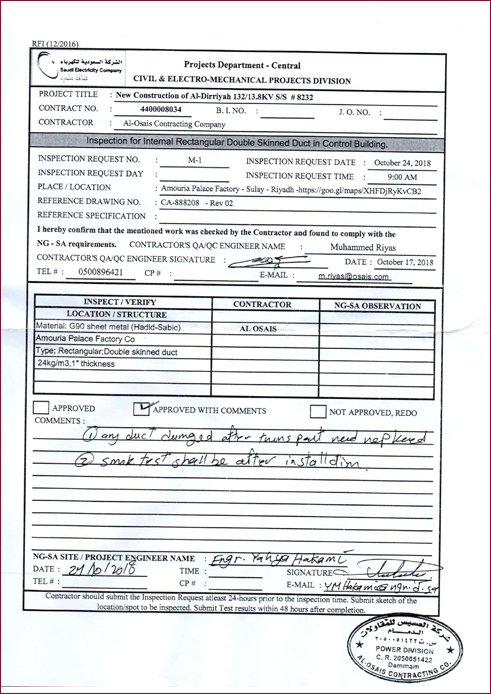 RFI (12/2016)
الشركة السعودية للكهرباء
Saudi Electricity Company
Projects Department - Central
CIVIL & ELECTRO-MECHANICAL PROJECTS DIVISION
PROJECT TITLE : New Construction of Al-Dirriyah 132/13.8KV S/S # 8232
CONTRACT NO. : 4400008034 B. I. NO. : J. O. NO. :
CONTRACTOR : Al-Osais Contracting Company
Inspection for Internal Rectangular Double Skinned Duct in Control Building.
INSPECTION REQUEST NO. : M-1 INSPECTION REQUEST DATE : October 24, 2018
INSPECTION REQUEST DAY : INSPECTION REQUEST TIME : 9:00 AM
PLACE / LOCATION : Amouria Palace Factory - Sulay - Riyadh -https://goo.gl/maps/XHFDjRyKvCB2
REFERENCE DRAWING NO. : CA-888208 - Rev 02
REFERENCE SPECIFICATION :
I hereby confirm that the mentioned work was checked by the Contractor and found to comply with the
NG - SA requirements. CONTRACTOR'S QA/QC ENGINEER NAME : Muhammed Riyas
CONTRACTOR'S QA/QC ENGINEER SIGNATURE : DATE : October 17, 2018
TEL # : 0500896421 CP # : E-MAIL : m.riyas@osais.com
INSPECT / VERIFY CONTRACTOR NG-SA OBSERVATION
LOCATION / STRUCTURE
Material: G90 sheet metal (Hadid-Sabic) AL OSAIS
Amouria Palace Factory Co
Type; Rectangular;Double skinned duct
24kg/m3,1" thickness
APPROVED APPROVED WITH COMMENTS NOT APPROVED, REDO
COMMENTS :
① any duct dumged after transpart need
② smok test shall be after
NG-SA SITE / PROJECT ENGINEER NAME : Engr. Yahya Hakami
DATE : 24/10/2018 TIME : SIGNATURE
TEL # : CP # : E-MAIL :
Contractor should submit the Inspection Request atleast 24-hours prior to the inspection time. Submit sketch of the
location/spot to be inspected. Submit Test results within 48 hours after completion.
شركة العسيس للمقاولات
الدمام
POWER DIVISION
C. R. 2050051422
Dammam
AL-OSAIS CONTRACTING CO.